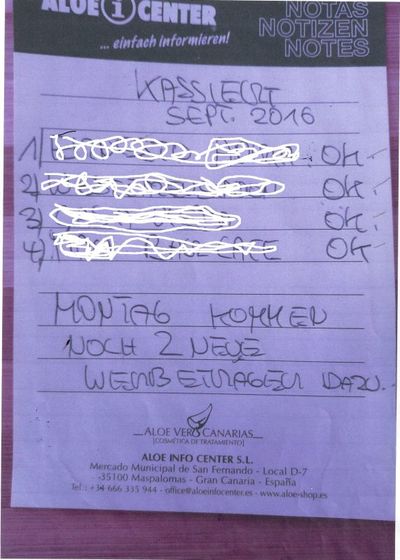 ALOE i CENTER
NOTAS
NOTIZEN
NOTES
... einfach informieren!
KASSIERT
SEPT. 2016
1) OK -
2) OK -
3) OK -
4) OK -
MONTAG KOMMEN
NOCH 2 NEUE
DAZU.
ALOE VERA CANARIAS
[COSMÉTICA DE TRATAMIENTO]
ALOE INFO CENTER S.L.
Mercado Municipal de San Fernando - Local D-7
-35100 Maspalomas - Gran Canaria - España
Tel.: +34 666 335 944 - office@aloeinfocenter.es - www.aloe-shop.es